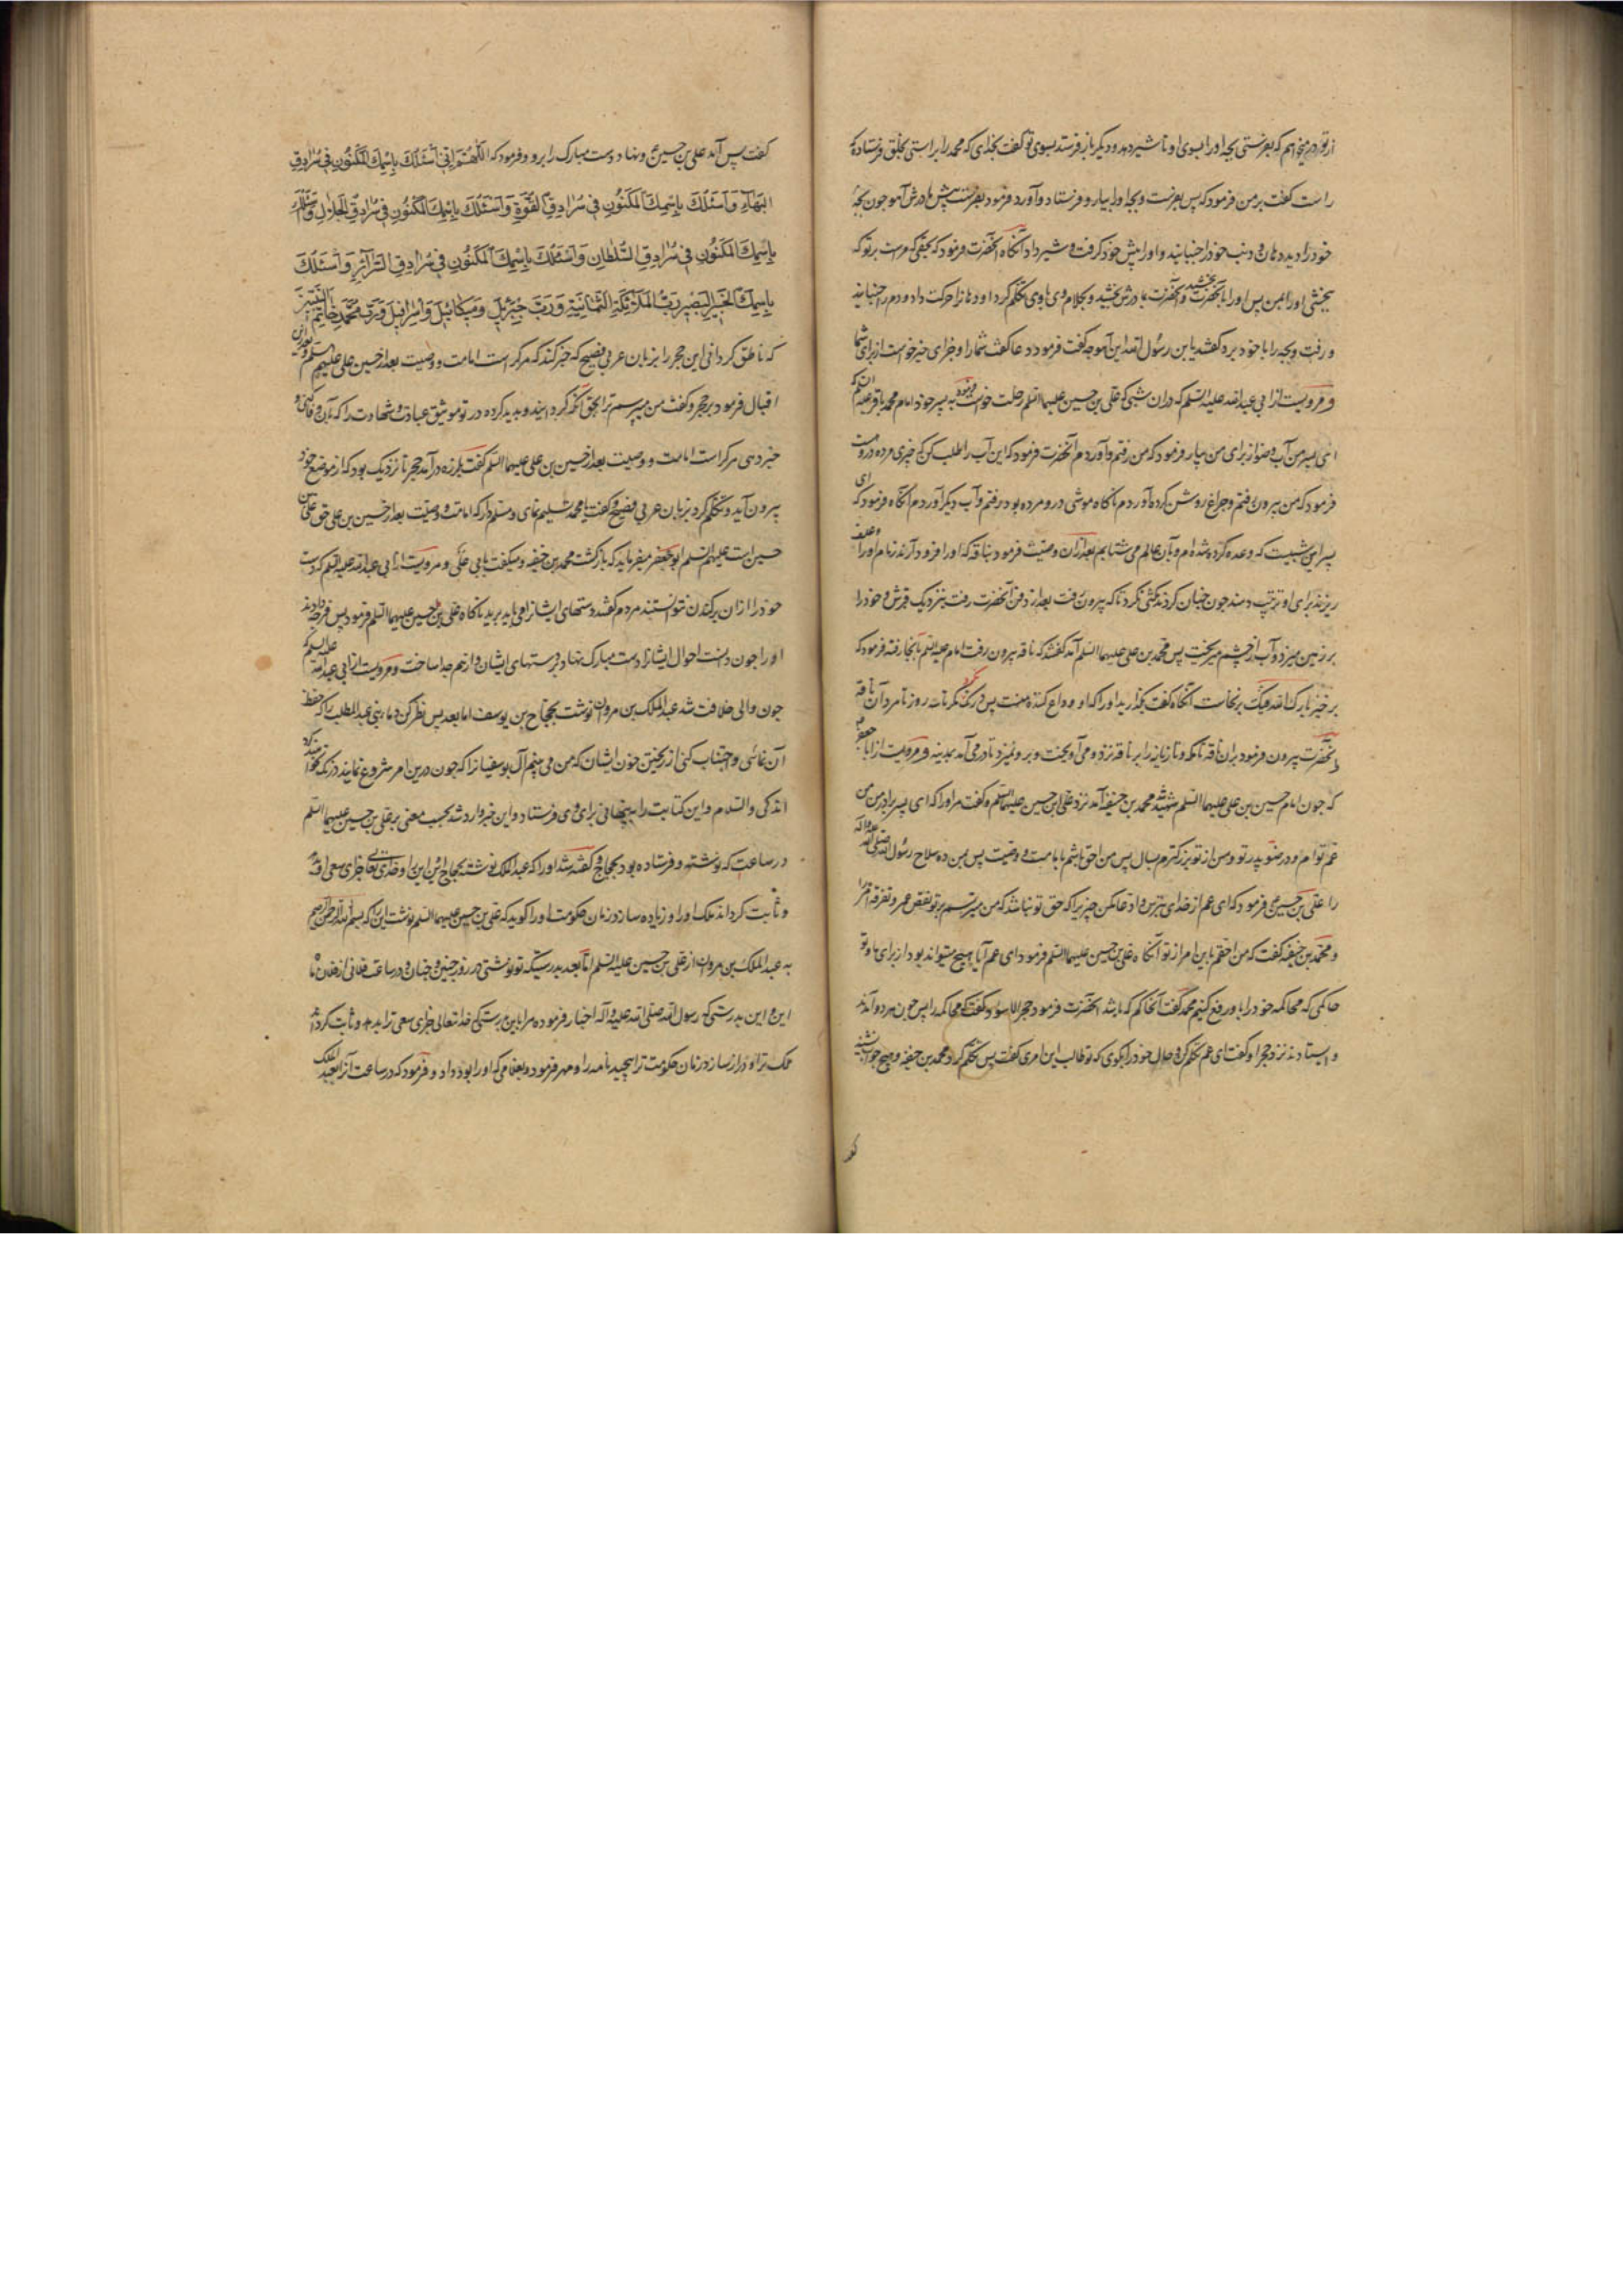 از تو درمیخواهم که بفرستی بچه او را بسوی او تا شیر دهد و دیگر باز فرستد بسوی تو گفت بخدای که محمد را براستی بخلق فرستاده که
راست گفت بر من فرمود که پس بفرست و بچه او را بیار و فرستاد و آورد فرمود بفرست پیش مادرش آهو چون بچه
خود را دید دهان و دنب خود را جنبانید و او را پیش خود گرفت و شیر داد آنگاه آنحضرت فرمود که بحقی که مراست بر تو که
بخشی او را بمن پس او را بآنحضرت بخشید و آنحضرت بمادرش بخشید و بکلام وی با وی تکلم کرد و او دهان را حرکت داد و دم را جنبانید
و رفت و بچه را با خود برد گفتند یا بن رسول الله این آهو چه گفت فرمود دعا گفت شما را و جزای خیر خواست از برای شما
و مرویست از ابی عبد الله علیه السلم که در ان شبی که علی بن حسین علیهما السلم رحلت خواست فرمود به پسر خود امام محمد باقر علیه السلم که
ای پسر من آب وضو از برای من بیار فرمود که من رفتم و آوردم آنحضرت فرمود که این آب را مطلب کن که چیزی مرده دروست
فرمود که من بیرون رفتم و چراغ روشن کرده آوردم ناگاه موشی درو مرده بود رفتم و آب دیگر آوردم آنگاه فرمود که ای
پسر این شبیست که وعده کرده شده ام و بآن عالم می شتابم بعد از ان وصیت فرمود بناقه که او را فرود آرند زمام او را و علف
ریزند برای او ترتیب دهند چون چنان کردند مکثی نکرد تا که بیرون رفت بعد از دفن آنحضرت رفت بنزدیک قبرش و خود را
بر زمین میزد و آب از چشم میریخت پس محمد بن علی علیهما السلم آمد گفتند که ناقه بیرون رفت امام علیه السلم بآنجا رفته فرمود که
برخیز بارک الله فیک برنخاست آنگاه گفت بگذارید او را که او وداع کننده منست پس درنگ نکرد مگر تا سه روز تا مرد آن ناقه
و آنحضرت بیرون فرمود بران ناقه تا مکه و تازیانه را بر ناقه نزده می آویخت و برو نمیزد تا در می آمد بمدینه و مرویست از ابا جعفر ع
که چون امام حسین بن علی علیهما السلم شهید شد محمد بن حنفیه آمد نزد علی بن حسین علیهما السلم و گفت مر او را که ای پسر برادر من من
عم توام و در صنو پدر تو و من از تو بزرکترم بسال پس من احق باشم بامامت و وصیت پس بمن ده سلاح رسول الله صلی الله علیه و آله
را علی بن حسین ع فرمود که ای عم از خدای بترس و ادعا مکن چیزی را که حق تو نباشد که من میترسم بر تو نقص عمر و تفرقه امر را
و محمد بن حنفیه گفت که من احقم باین امر از تو آنگاه علی بن حسین علیهما السلم فرمود ای عم آیا هیچ میتواند بود از برای ما و تو
حاکمی که محاکمه خود را باو رفع کنیم محمد گفت آنحاکم که باشد آنحضرت فرمود حجر الاسود گفت که محاکمه را پس چون هر دو آمدند
و ایستادند نزد حجر او گفت ای عم تکلم کن و حال خود را بگوی که تو طالب این امری گفت پس تکلم کرد محمد بن حنفیه و هیچ جواب نشنید
گفت پس آمد علی بن حسین ع و نهاد دست مبارک را برو و فرمود که اَللّهُمَّ اِنّی اَسْئَلُكَ بِاسْمِكَ الْمَكْنُونِ فی سُرادِقِ
الْبَهآءِ وَاَسْئَلُكَ بِاسْمِكَ الْمَكْنُونِ فی سُرادِقِ الْقُوَّةِ وَاَسْئَلُكَ بِاسْمِكَ الْمَكْنُونِ فی سُرادِقِ الْجَلالِ وَاَسْئَلُكَ
بِاسْمِكَ الْمَكْنُونِ فی سُرادِقِ السُّلْطانِ وَاَسْئَلُكَ بِاسْمِكَ الْمَكْنُونِ فی سُرادِقِ السَّرآئِرِ وَاَسْئَلُكَ
بِاسْمِكَ الْخَبیرِ الْبَصیرِ رَبِّ الْمَلآئِكَةِ الثَّمانِیَةِ وَرَبَّ جِبْرَئیلَ وَمیكائیلَ وَاِسْرافیلَ وَرَبَّ مُحَمَّدٍ خاتَمِ النَّبِیّینَ
که ناطق گردانی این حجر را بزبان عربی فصیح که خبر کند که مر کراست امامت و وصیت بعد از حسین علی علیهم السلم و بعد از ان
اقبال فرمود بر حجر و گفت من میپرسم ترا بحق آنکه گردانیده و پدید کرده در تو موثیق عباد و شهادت را که بآن وفا کنی و
خبر دهی مر کراست امامت و وصیت بعد از حسین بن علی علیهما السلم گفت بلرزه درآمد حجر تا نزدیک بود که از موضع خود
بیرون آید و تکلم کرد بزبان عربی فصیح و گفت یا محمد تسلیم نمای و مسلم دار که امامت و وصیت بعد از حسین بن علی حق علی بن
حسین است علیهم السلم ابو جعفر میفرماید که بازگشت محمد بن حنفیه و میگفت بابی علی و مرویست از ابی عبد الله علیه السلم که دست
خود را از ان برکندن نتوانستند مردم گفتند دستهای ایشانرا می باید برید ناگاه علی بن حسین علیهما السلم فرمود پس فرجه دادند
او را چون دانست احوال ایشانرا دست مبارک بنهاد بر دستهای ایشان و از هم جدا ساخت و مرویست از ابی عبد الله علیه السلم که
چون والی خلافت شد عبد الملک بن مروان نوشت بحجاج بن یوسف اما بعد پس نظر کن دماء بنی عبد المطلب را که حفظ
آن نمائی و اجتناب کنی از ریختن خون ایشان که من می بینم آل بو سفیانرا که چون درین امر شروع نمایند درنگ نخواهند کرد مگر
اندکی والسلام و این کتابت را پنهانی برای وی فرستاد و این خبر وارد شد بحسب معنی بر علی بن حسین علیهما السلم
در ساعت که نوشته و فرستاده بود بحجاج و گفته شد او را که عبد الملک نوشته بحجاج این و این و خدای تعالی جزای سعی او داد
و ثابت گرداند ملک او را و زیاده سازد زمان حکومت او را گوید که علی بن حسین علیهما السلم نوشت این را که بسم الله الرحمن الرحیم
به عبد الملک بن مروان از علی بن حسین علیه السلم اما بعد بدرستیکه تو نوشتی در روز چنین و چنان و در ساعت فلانی از فلان ماه
این و این بدرستی که رسول الله صلی الله علیه و آله اخبار فرموده مرا باین بدرستی که خدا تعالی جزای سعی ترا بدهد و ثابت گرداند
ملک ترا و دراز سازد زمان حکومت ترا پیچید نامه را و مهر فرمود و بغلامی که او را بود داد و فرمود که در ساعت آنرا بعبد الملک